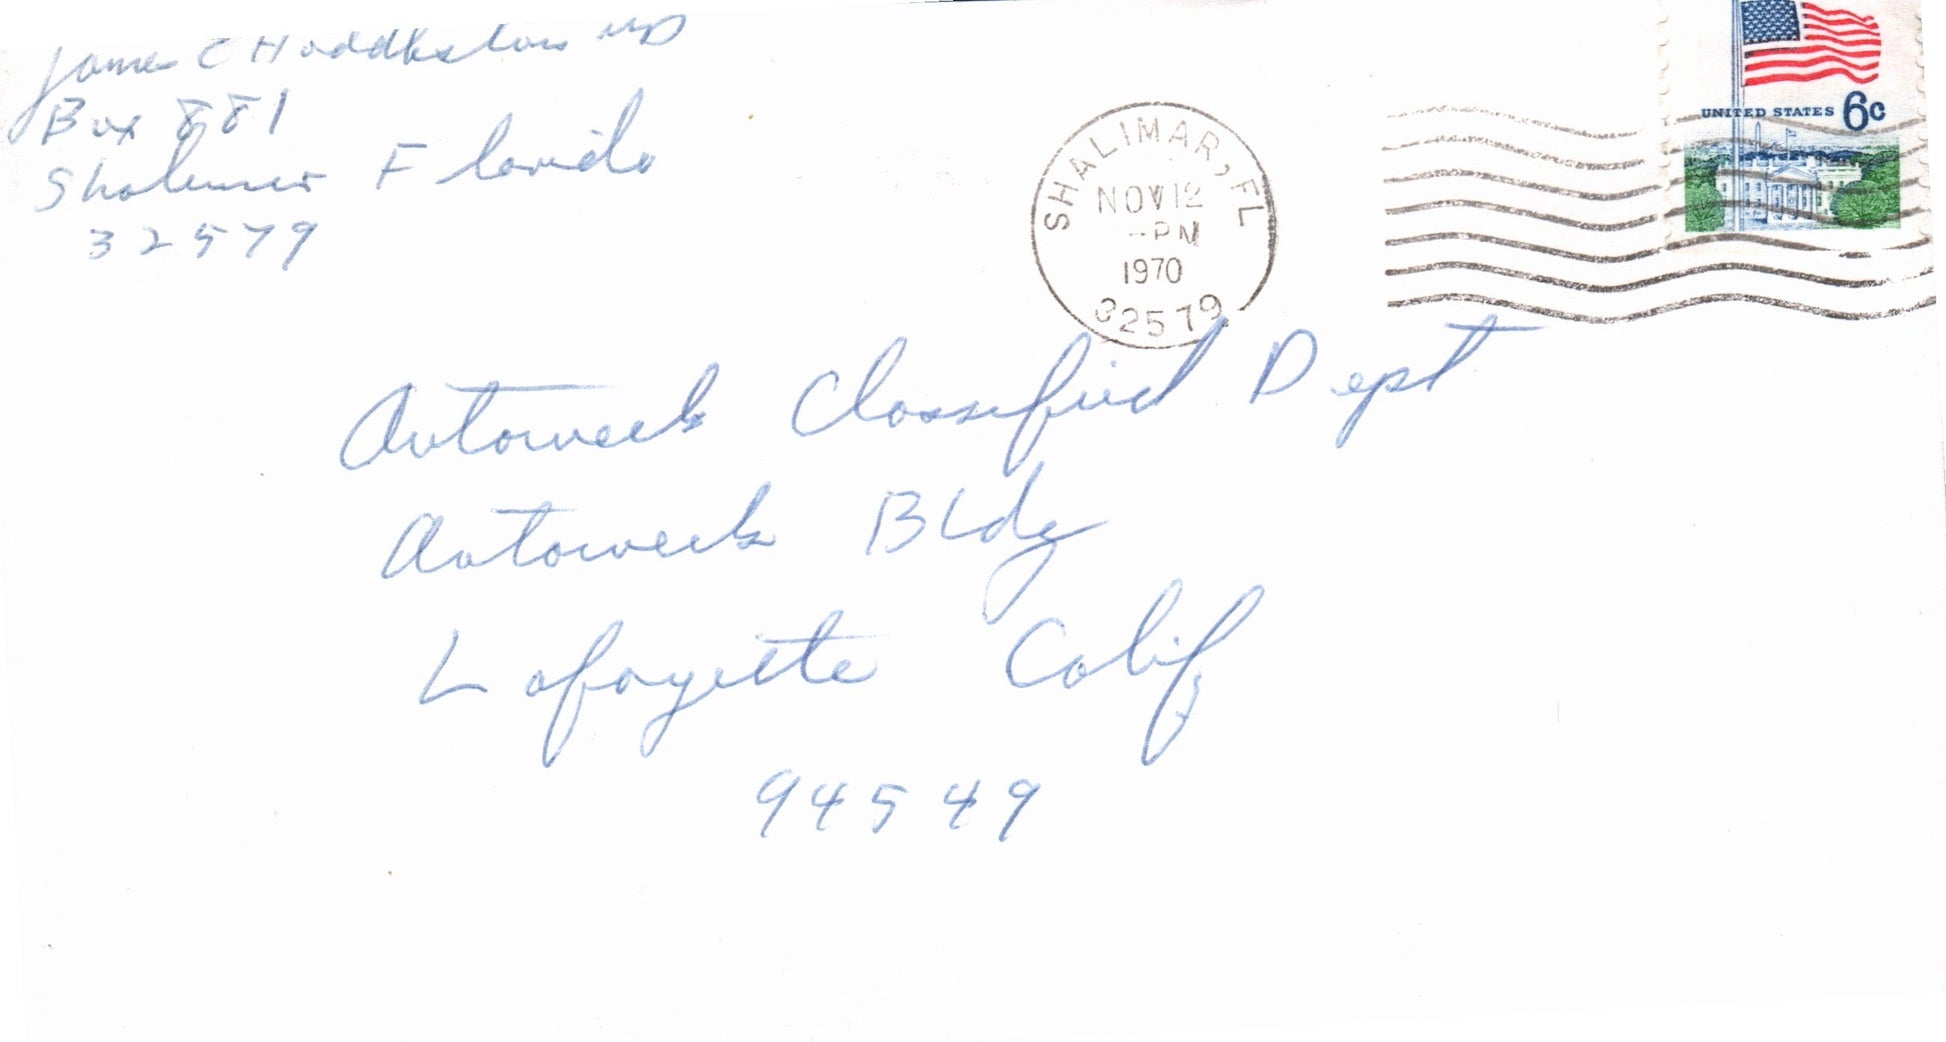 James C Huddleston MD
Box 881
Shalimar Florida
32579
SHALIMAR, FL
NOV 12
-PM
1970
32579
UNITED STATES 6c
Autoweek Classified Dept
Autoweek Bldg
Lafayette Calif
94549